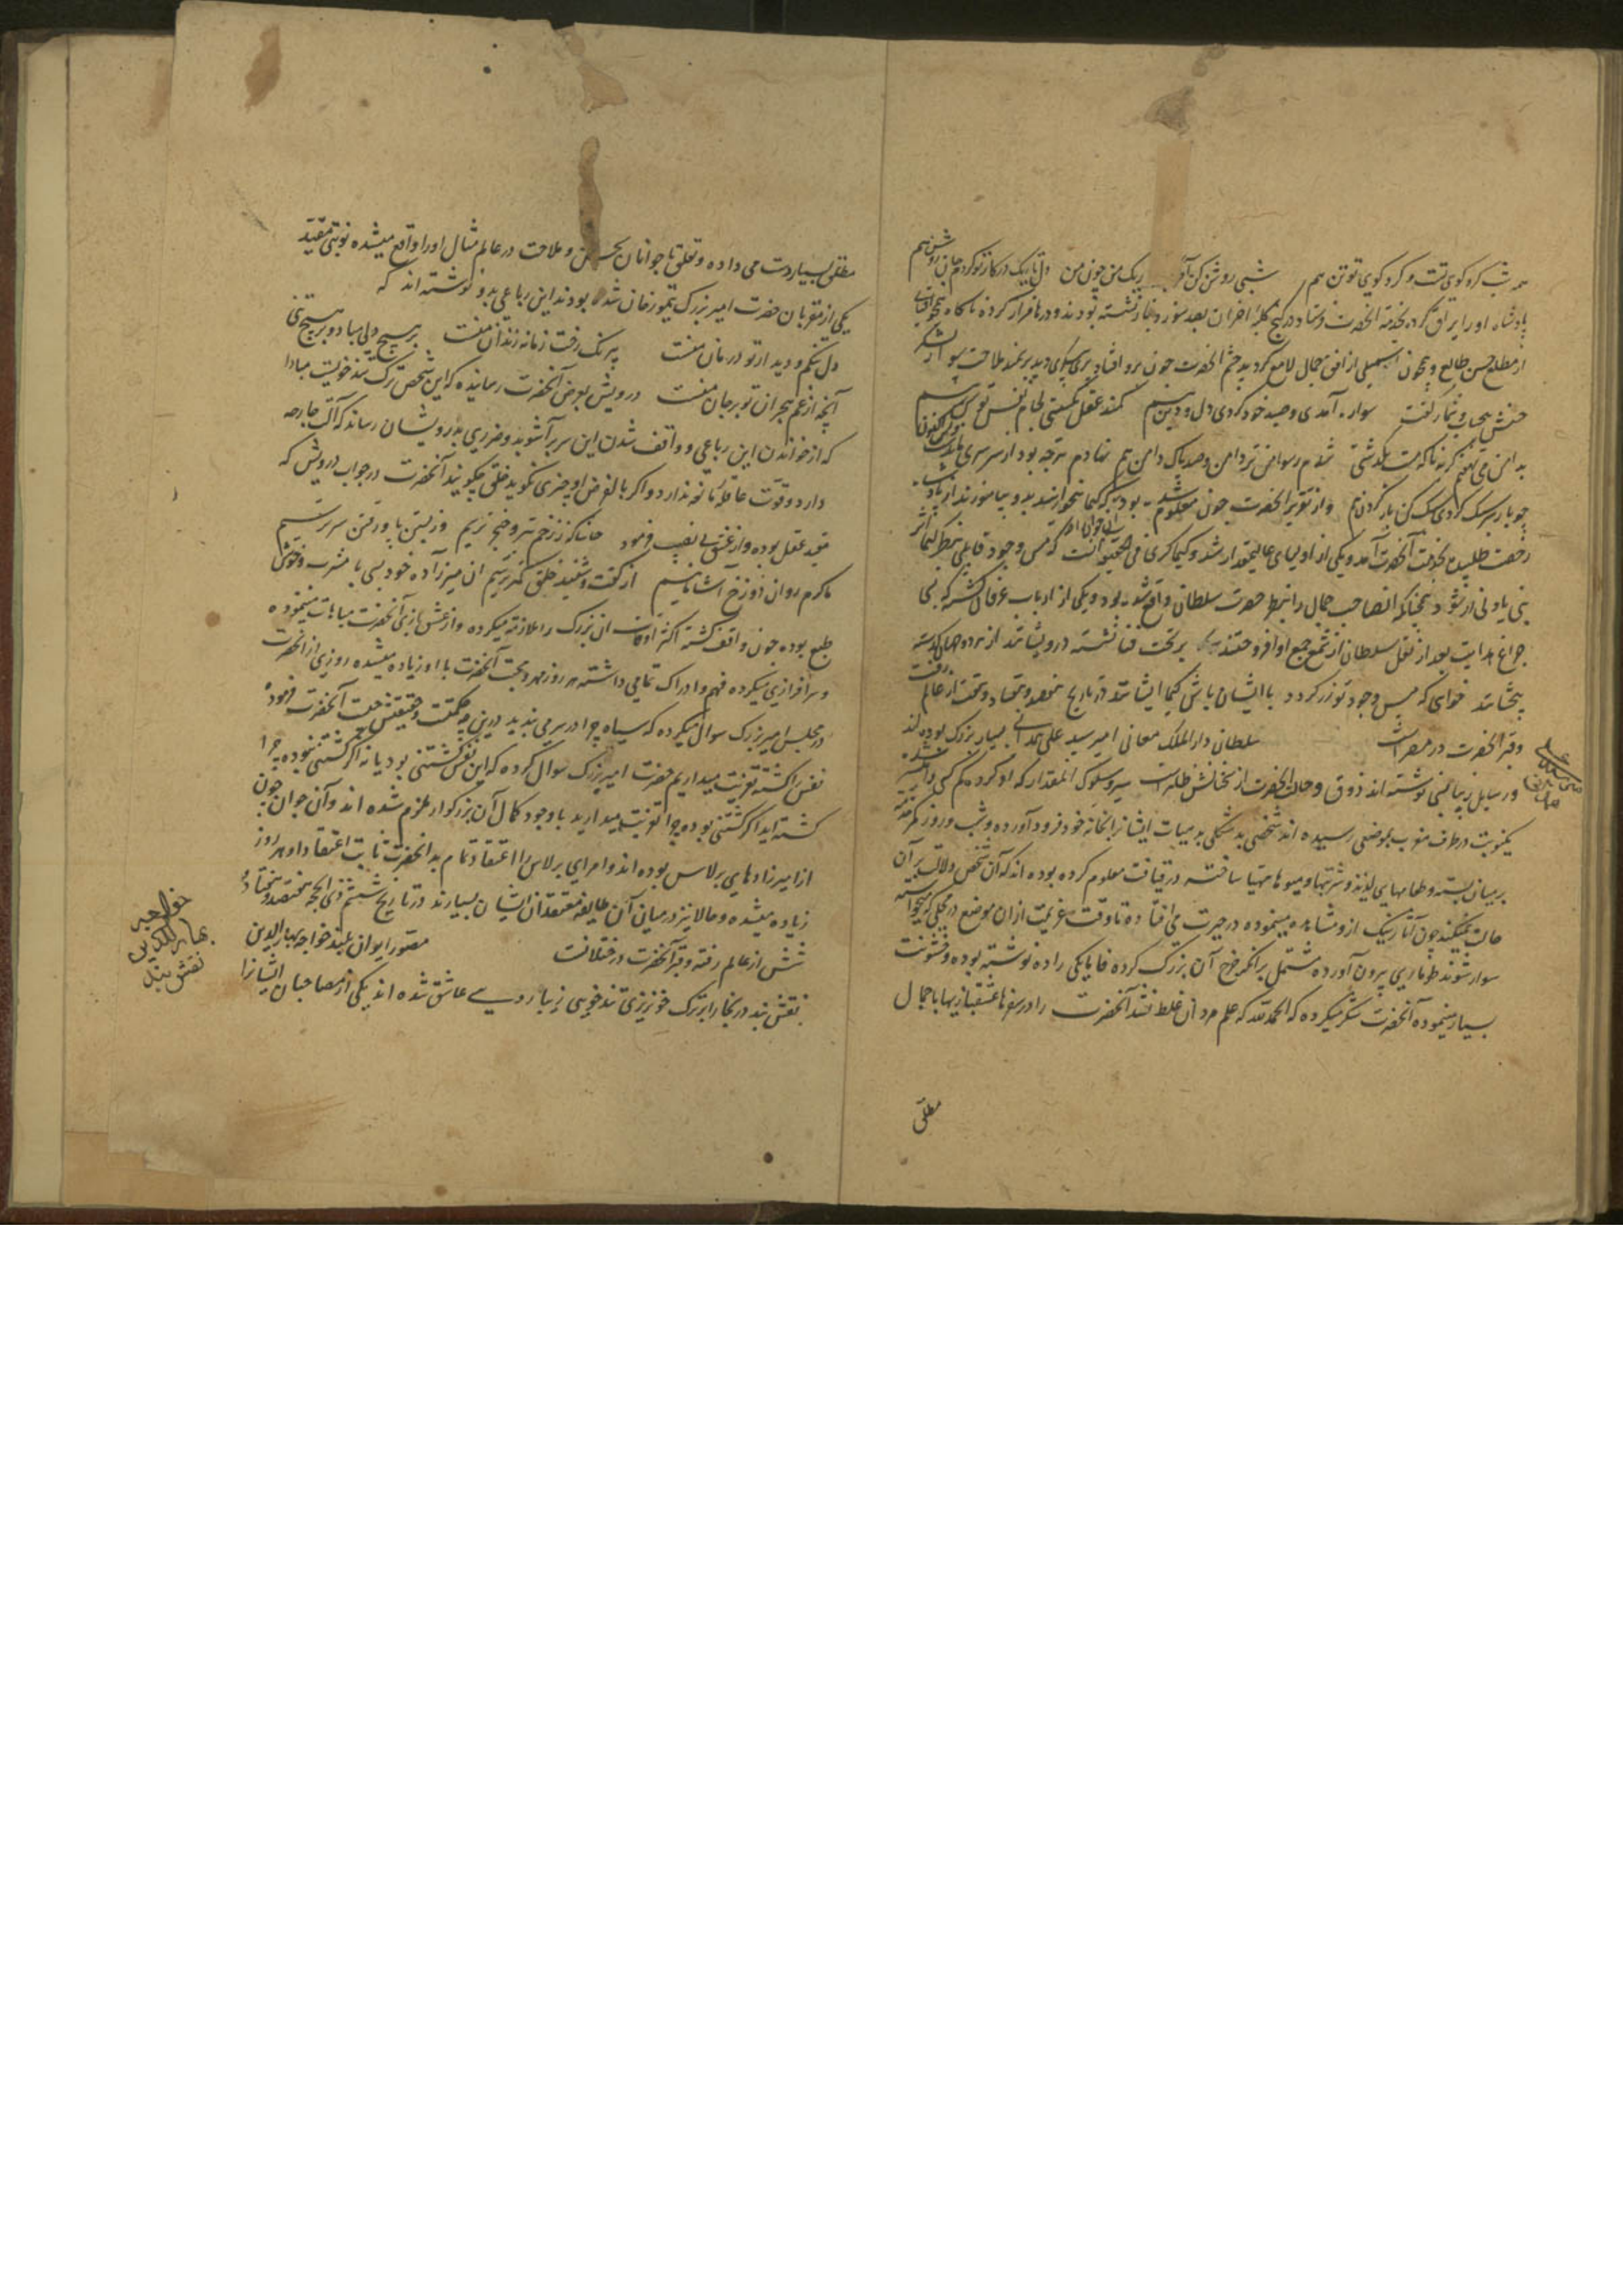 هر شب کرد کوی تست و کرد کوی تو تن هم شبی روشن کن آخر تاریک من چون من دل تاریک در کار تو کردم جان روشن هم
پادشاه او را یراق کرده بخدمة الحضرت فرستاد در کنج بعد سوز و نیاز نشسته بودند و در ها فراز کرده ناگاه
از مطلع حسن طالع و همچون سهیلی از افق جمال لامع کردید چشم الحضرت چون برو افتاد پری پیکری دید بر سمند ملاحت سوار
سواره آمدی و صید خود کردی دل و تن هم کمند عقل بکسستی لجام نفس توسن هم
به دامن می نهفتم گریه ناگه مست بگذشتی شدم رسوا من تر دامن و صد پاک دامن هم
چو بار سر سبک کردی سبک کن بار کردن هم و از تقریر الحضرت چون معلوم شده بود که کیمیا
رخصت طلبیده بخدمت آنحضرت آمد و یکی از اولیای عالیمقدار شد و کیمیاگری فی الحقیقه آنست که مس وجود قابلی بنظر کیمیا اثر
چنانکه انصاحب جمال را از نظر حضرت سلطان واقع شده بود و یکی از ارباب عرفان گشته که بی
چراغ هدایت بعد از نقل سلطان از شمع جمع او افروختند بر تخت فنا نشسته درویشانند
خواهی که مس وجود تو زر کردد با ایشان باش کیمیا ایشانند در تاریخ هفصد و هفتاد و هشت از عالم رفت
و قبر الحضرت در مصر است سلطانی دار الملک معانی امیر سید علی همدانی بسیار بزرگ بوده اند
و رسایل نوشته اند ذوق و حالت الحضرت از سیر و سلوک المقدار که او کرده کم کسی را میسر شده
یکنوبت در طرف مغرب بموضعی رسیده اند شخصی ایشانرا بخانه خود فرود آورده و شب و روز کمر خدمت
بر میان بسته و طعامهای لذیذ و شربتها و میوها مهیا ساخته در قیافت معلوم کرده بوده اند که آن شخص دلالت بر آن
حالت نمیکند چون آثار نیک ازو مشاهده مینموده در حیرت می افتاده تا وقت عزیمت ازان موضع
سوار شوند طوماری بیرون آورده مشتمل برانکه خرج آن بزرگ کرده فایایکی را ده نوشته بوده و خشونت
بسیار مینموده آنحضرت شکر میکرده که الحمدلله که علم مردان غلط نشد آنحضرت را در سفرها عشقبازیها با جمال
مطلق
امیر سید علی همدانی
مطلق بسیار دست می داده و تعلق با جوانان بحسن و ملاحت در عالم مثال او را واقع میشده نوبتی مقید
یکی از مقربان حضرت امیر بزرگ تیمور خان شده بودند این رباعی بدو نوشته اند که
دل تنگم و دیدار تو درمان منست بی رنگ رخت زمانه زندان منست بر هیچ دلی مباد و بر هیچ تنی
آنچه از غم هجران تو بر جان منست درویش بعرض آنحضرت رسانیده که این شخص ترک تند خویست مبادا
که از خواندن این رباعی و واقف شدن این سر بر آشوبد و ضرری بدرویشان رساند که آلت جارحه
دارد و قوت عاقله مانعه ندارد و اگر بالفرض او چیزی نگوید خلق چگویند آنحضرت در جواب درویش که
مقید عقل بوده و از عشق بی نصیب فرمود حاشا که ز زخم تیر و خنجر ترسیم وز بستن پا و رفتن سر ترسیم
ما گرم روان دوزخ آشامانیم از گفت و شنید خلق کمتر ترسیم آن میرزاده خود بسی با مشرب و خوش
طبع بوده چون واقف گشته اکثر اوقات آن بزرگ را ملازمه میکرده و از عشق بازی آنحضرت مباهات مینموده
و سرافرازی میکرده فهم و ادراک تمامی داشته هر روز مهر و محبت آنحضرت با او زیاده میشده روزی از انحضرت
در مجلس امیر بزرگ سوال میکرده که سیاه چرا در سر می بندید درین چه حکمتست و حقیقتش چیست آنحضرت فرموده
نفس را کشته تعزیت میداریم حضرت امیر بزرگ سوال کرده که این نفس کشتنی بود یا نه اگر کشتنی نبوده چرا
کشته اید اگر کشتنی بوده چرا تعزیت میدارید با وجود کمال آن بزرگوار ملزم شده اند و آن جوان چون
از امیرزادهای برلاس بوده اند و امرای برلاس را اعتقاد تمام به انحضرت ثابت اعتقاد او هر روز
زیاده میشده و حالا نیز در میان آن طایفه معتقدان ایشان بسیارند در تاریخ ششم ذی الحجه هفتصد و هشتاد و
شش از عالم رفته و قبر آنحضرت در ختلانست مصور ایوان بلند خواجه بهاء الدین
نقشبند در بخارا بر ترک خونریزی تند خویی زیبا رویی عاشق شده اند یکی از مصاحبان ایشانرا
خواجه
بهاء الدین
نقش بند